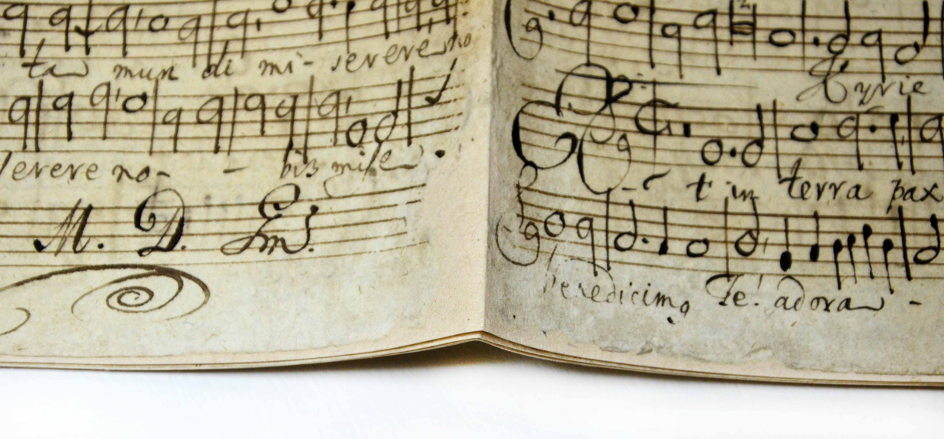 ta mun di mi- serere no
serere no- - bis mise
M. D. Em.
Kyrie
Et in terra pax
Benedicimq Te. adora -